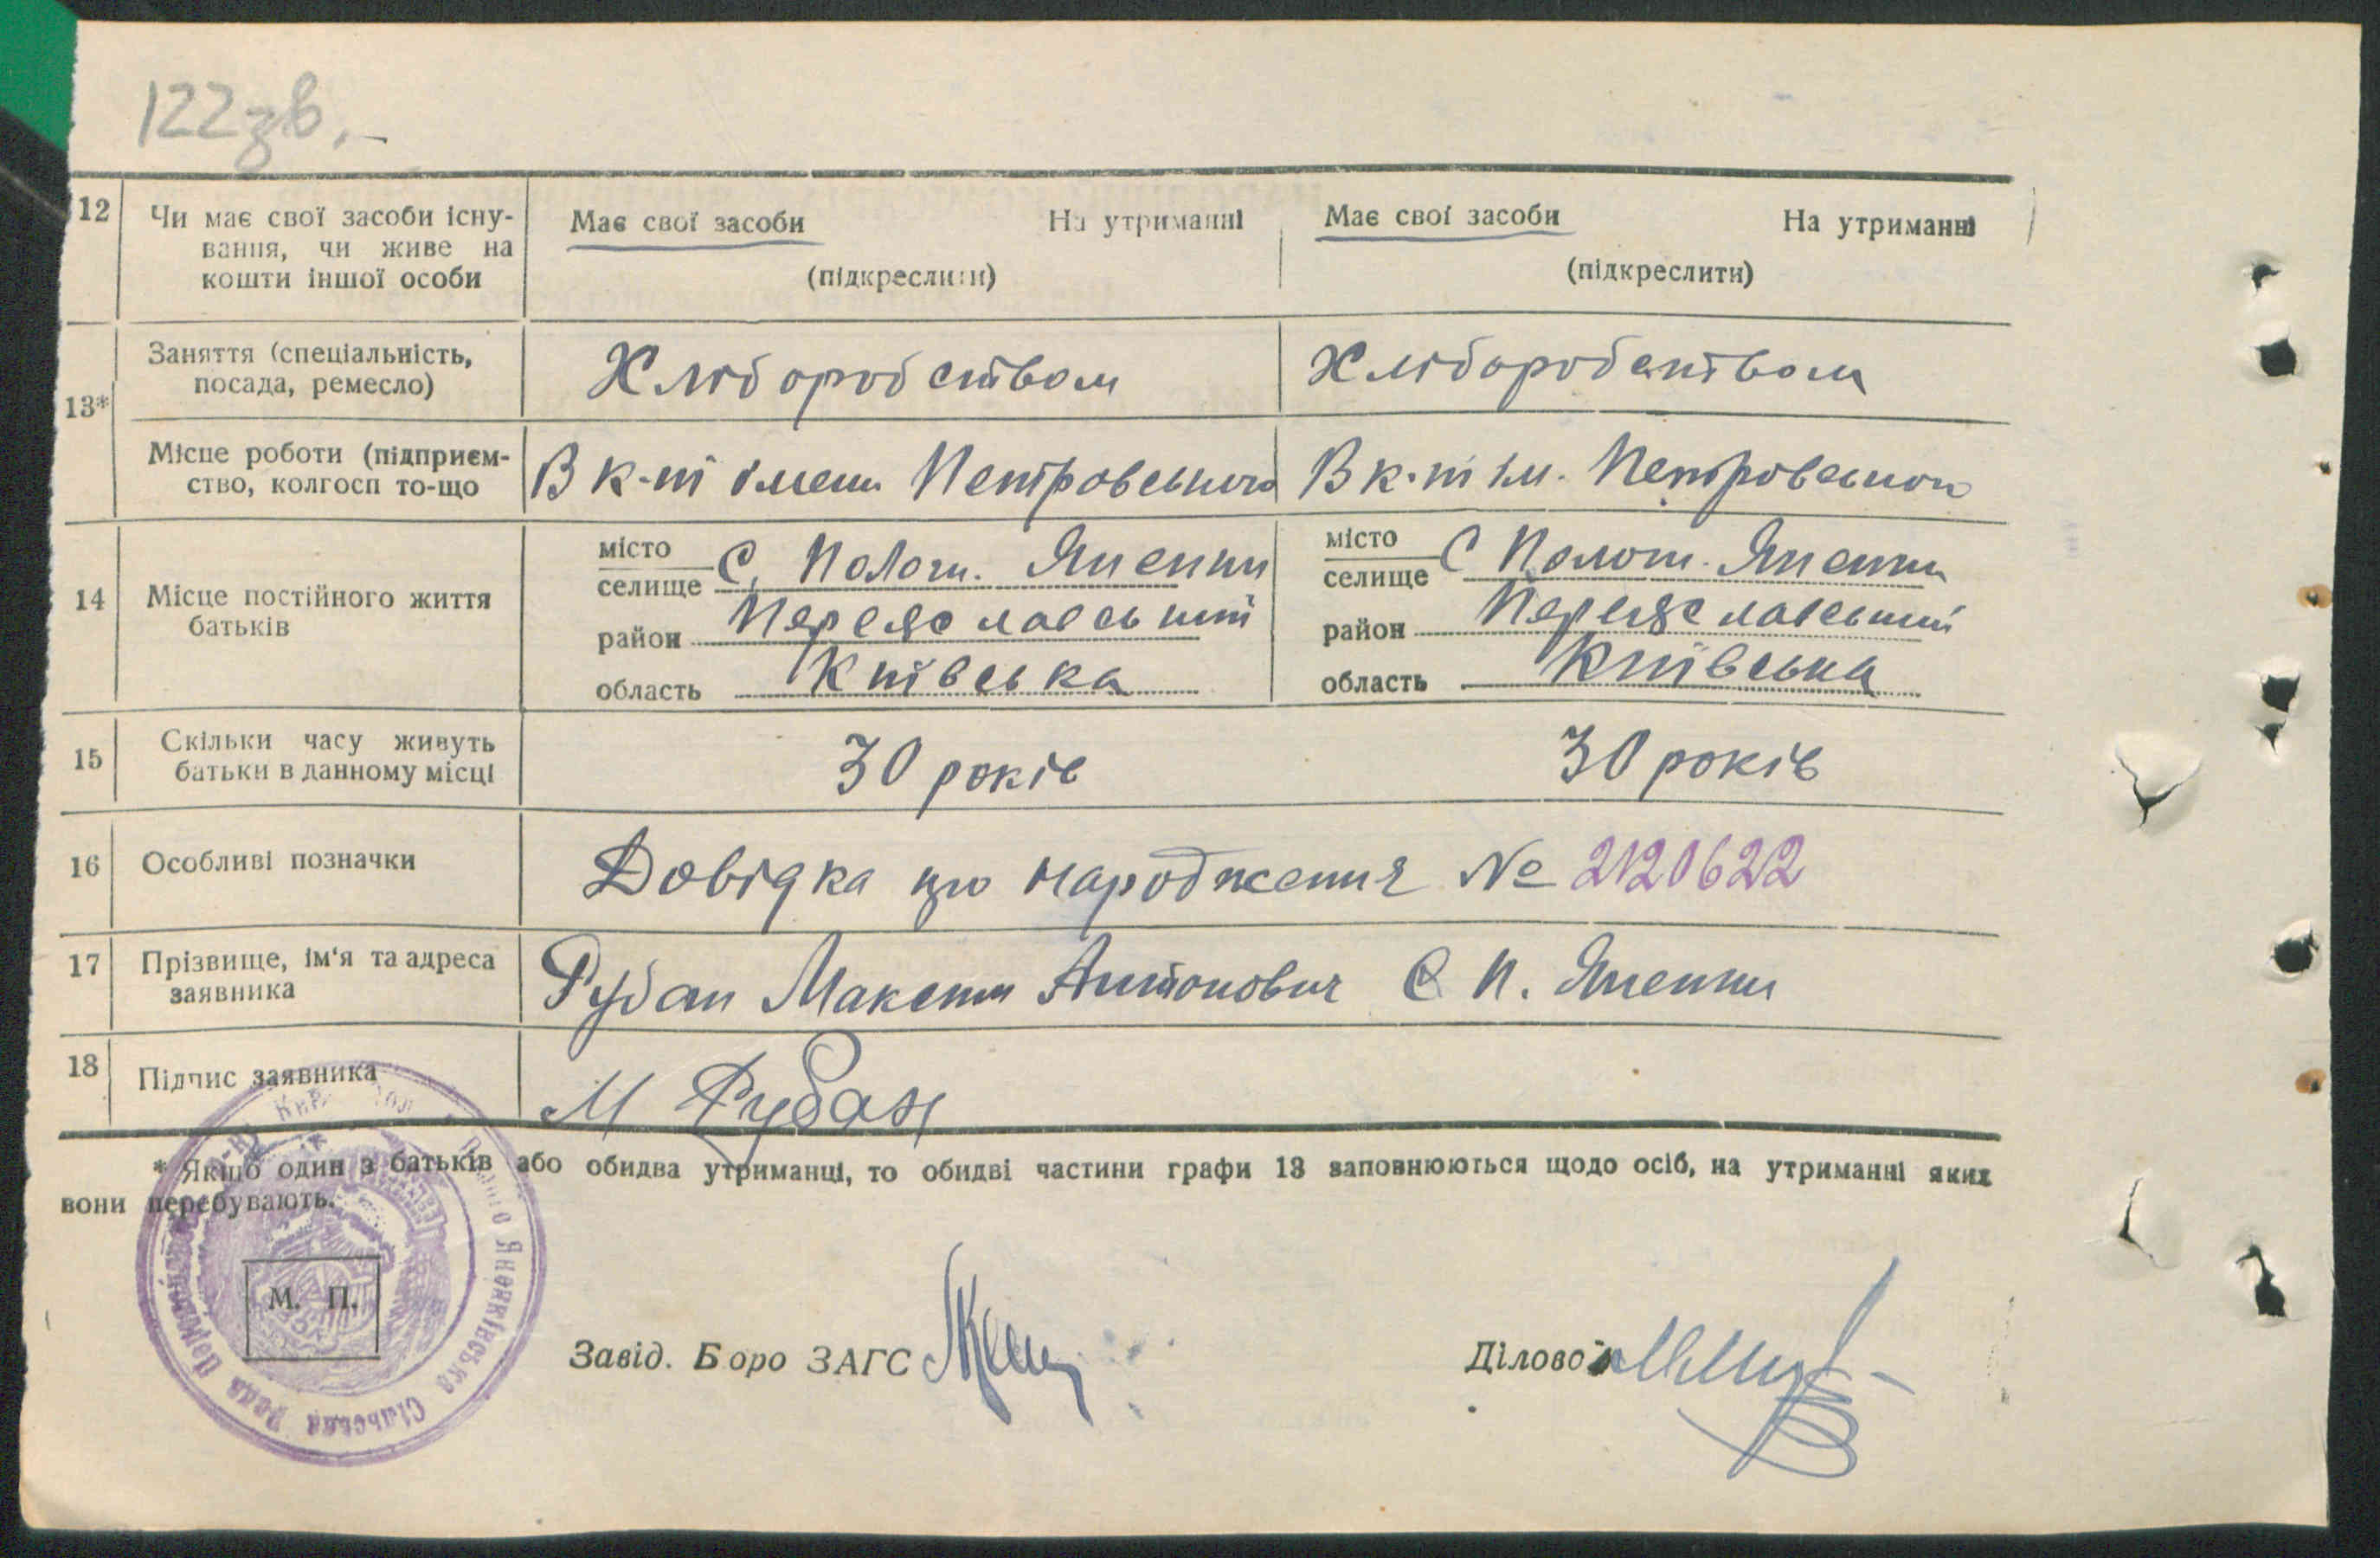 122зв.
12 Чи має свої засоби існу- Має свої засоби На утриманні Має свої засоби На утриманні
вання, чи живе на
кошти іншої особи (підкреслити) (підкреслити)
Заняття (спеціальність, Хліборобством Хліборобством
посада, ремесло)
13*
Місце роботи (підприєм- В к-ті імени Петровського В к-ті ім. Петровського
ство, колгосп то-що
місто місто
селище С. Полог. Яненки селище С Полог. Яненки
14 Місце постійного життя
батьків
район Переяславський район Переяславський
область Київська область Київська
15 Скільки часу живуть 30 років 30 років
батьки в данному місці
16 Особливі позначки Довідка про народження № 2120622
17 Прізвище, ім'я та адреса Рубан Максим Антонович С П. Яненки
заявника
18 Підпис заявника М Рубан
* Якщо один з батьків або обидва утриманці, то обидві частини графи 13 заповнюються щодо осіб, на утриманні яких
вони перебувають.
М. П.
Яненківська Сільська Рада
Завід. Бюро ЗАГС
Діловод